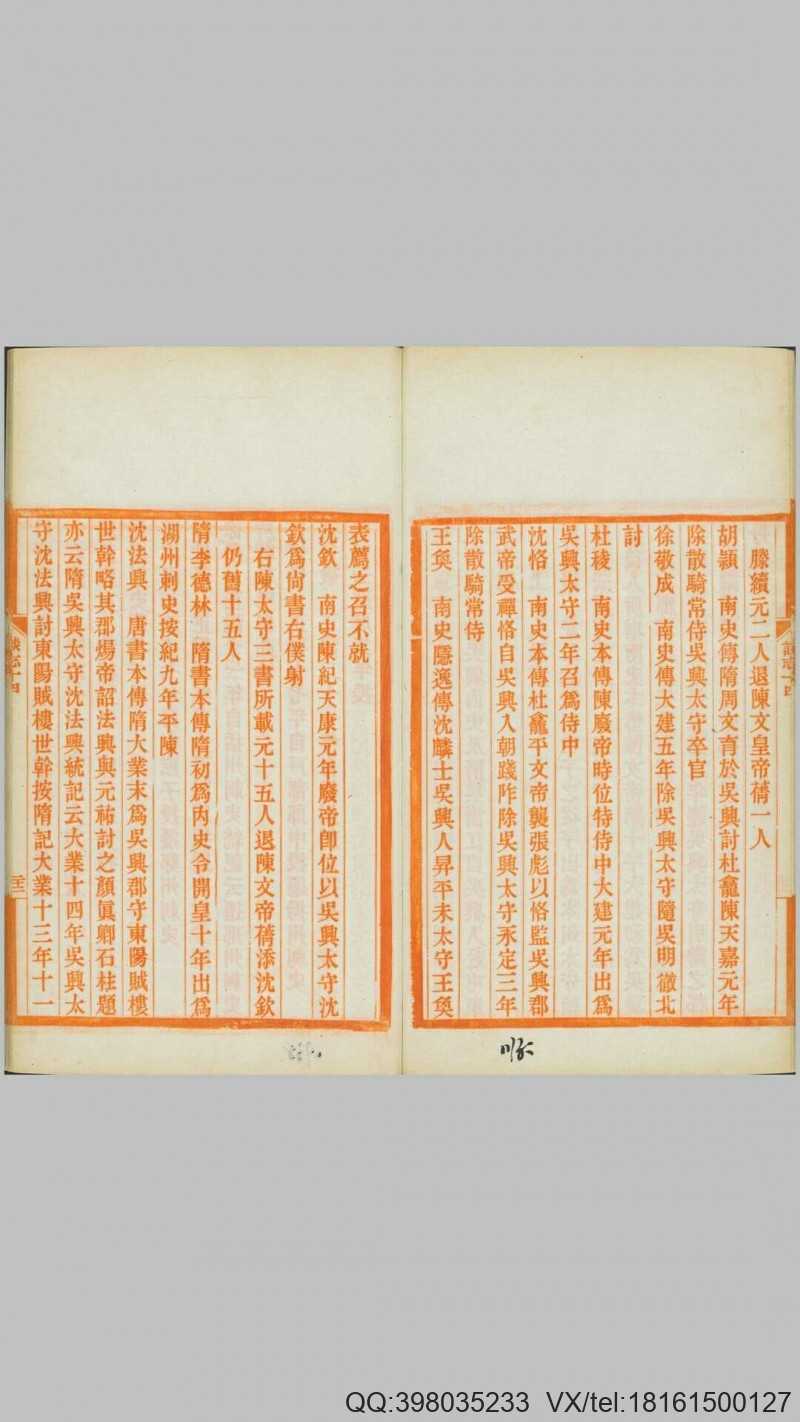 滕續元二人退陳文皇帝蒨一人
胡頴　南史傳隋周文育於吳興討杜龕陳天嘉元年
除散騎常侍吳興太守卒官
徐敬成　南史傳大建五年除吳興太守隨吳明徹北
討
杜稜　南史本傳陳廢帝時位特侍中大建元年出爲
吳興太守二年召爲侍中
沈恪　南史本傳杜龕平文帝襲張彪以恪監吳興郡
武帝受禪恪自吳興入朝踐阼除吳興太守永定三年
除散騎常侍
王奐　南史隱逸傳沈麟士吳興人昇平末太守王奐
表薦之召不就
沈欽　南史陳紀天康元年廢帝卽位以吳興太守沈
欽爲尙書右僕射
右陳太守三書所載元十五人退陳文帝蒨添沈欽
仍舊十五人
隋李德林　隋書本傳隋初爲內史令開皇十年出爲
湖州刺史按紀九年平陳
沈法興　唐書本傳隋大業末爲吳興郡守東陽賊樓
世幹略其郡煬帝詔法興與元祐討之顏眞卿石柱題
亦云隋吳興太守沈法興統記云大業十四年吳興太
守沈法興討東陽賊樓世幹按隋記大業十三年十一
QQ:398035233 VX/tel:18161500127